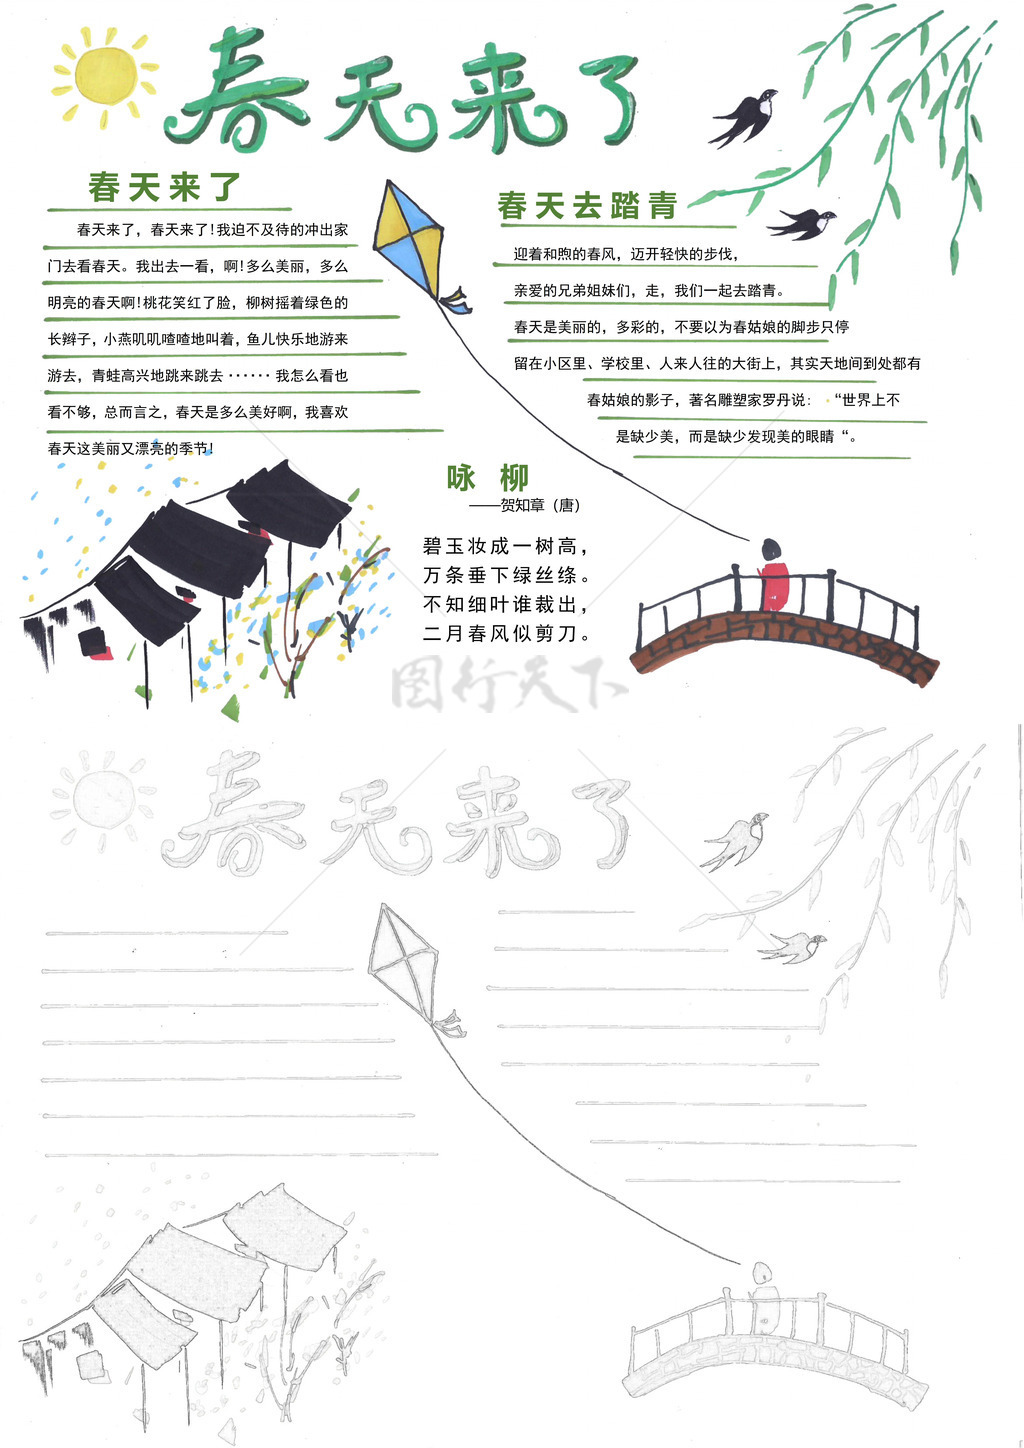 春天来了
春天来了
春天来了，春天来了！我迫不及待的冲出家
门去看春天。我出去一看，啊！多么美丽，多么
明亮的春天啊！桃花笑红了脸，柳树摇着绿色的
长辫子，小燕叽叽喳喳地叫着，鱼儿快乐地游来
游去，青蛙高兴地跳来跳去······我怎么看也
看不够，总而言之，春天是多么美好啊，我喜欢
春天这美丽又漂亮的季节！
春天去踏青
迎着和煦的春风，迈开轻快的步伐，
亲爱的兄弟姐妹们，走，我们一起去踏青。
春天是美丽的，多彩的，不要以为春姑娘的脚步只停
留在小区里、学校里、人来人往的大街上，其实天地间到处都有
春姑娘的影子，著名雕塑家罗丹说：“世界上不
是缺少美，而是缺少发现美的眼睛“。
咏柳
——贺知章（唐）
碧玉妆成一树高，
万条垂下绿丝绦。
不知细叶谁裁出，
二月春风似剪刀。
图行天下
春天来了